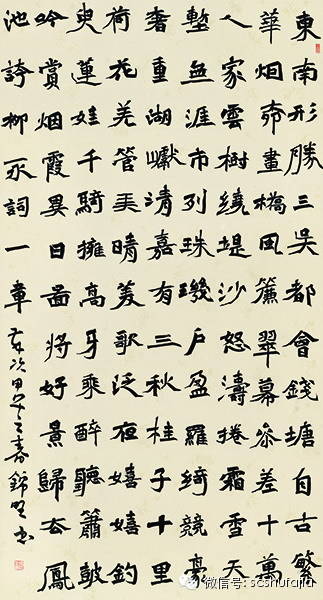 東南形勝三吳都會錢塘自古繁
華烟柳畫橋風簾翠幕參差十萬
人家雲樹繞堤沙怒濤捲霜雪天
塹無涯市列珠璣戶盈羅綺競豪
奢重湖巘清嘉有三秋桂子十里
荷花羌管弄晴菱歌泛夜嬉嬉釣
叟蓮娃千騎擁高牙乘醉聽簫鼓
吟賞烟霞異日圖將好景歸去鳳
池誇柳永詞一章 歲次甲午之春錦書
微信号: scshufajia